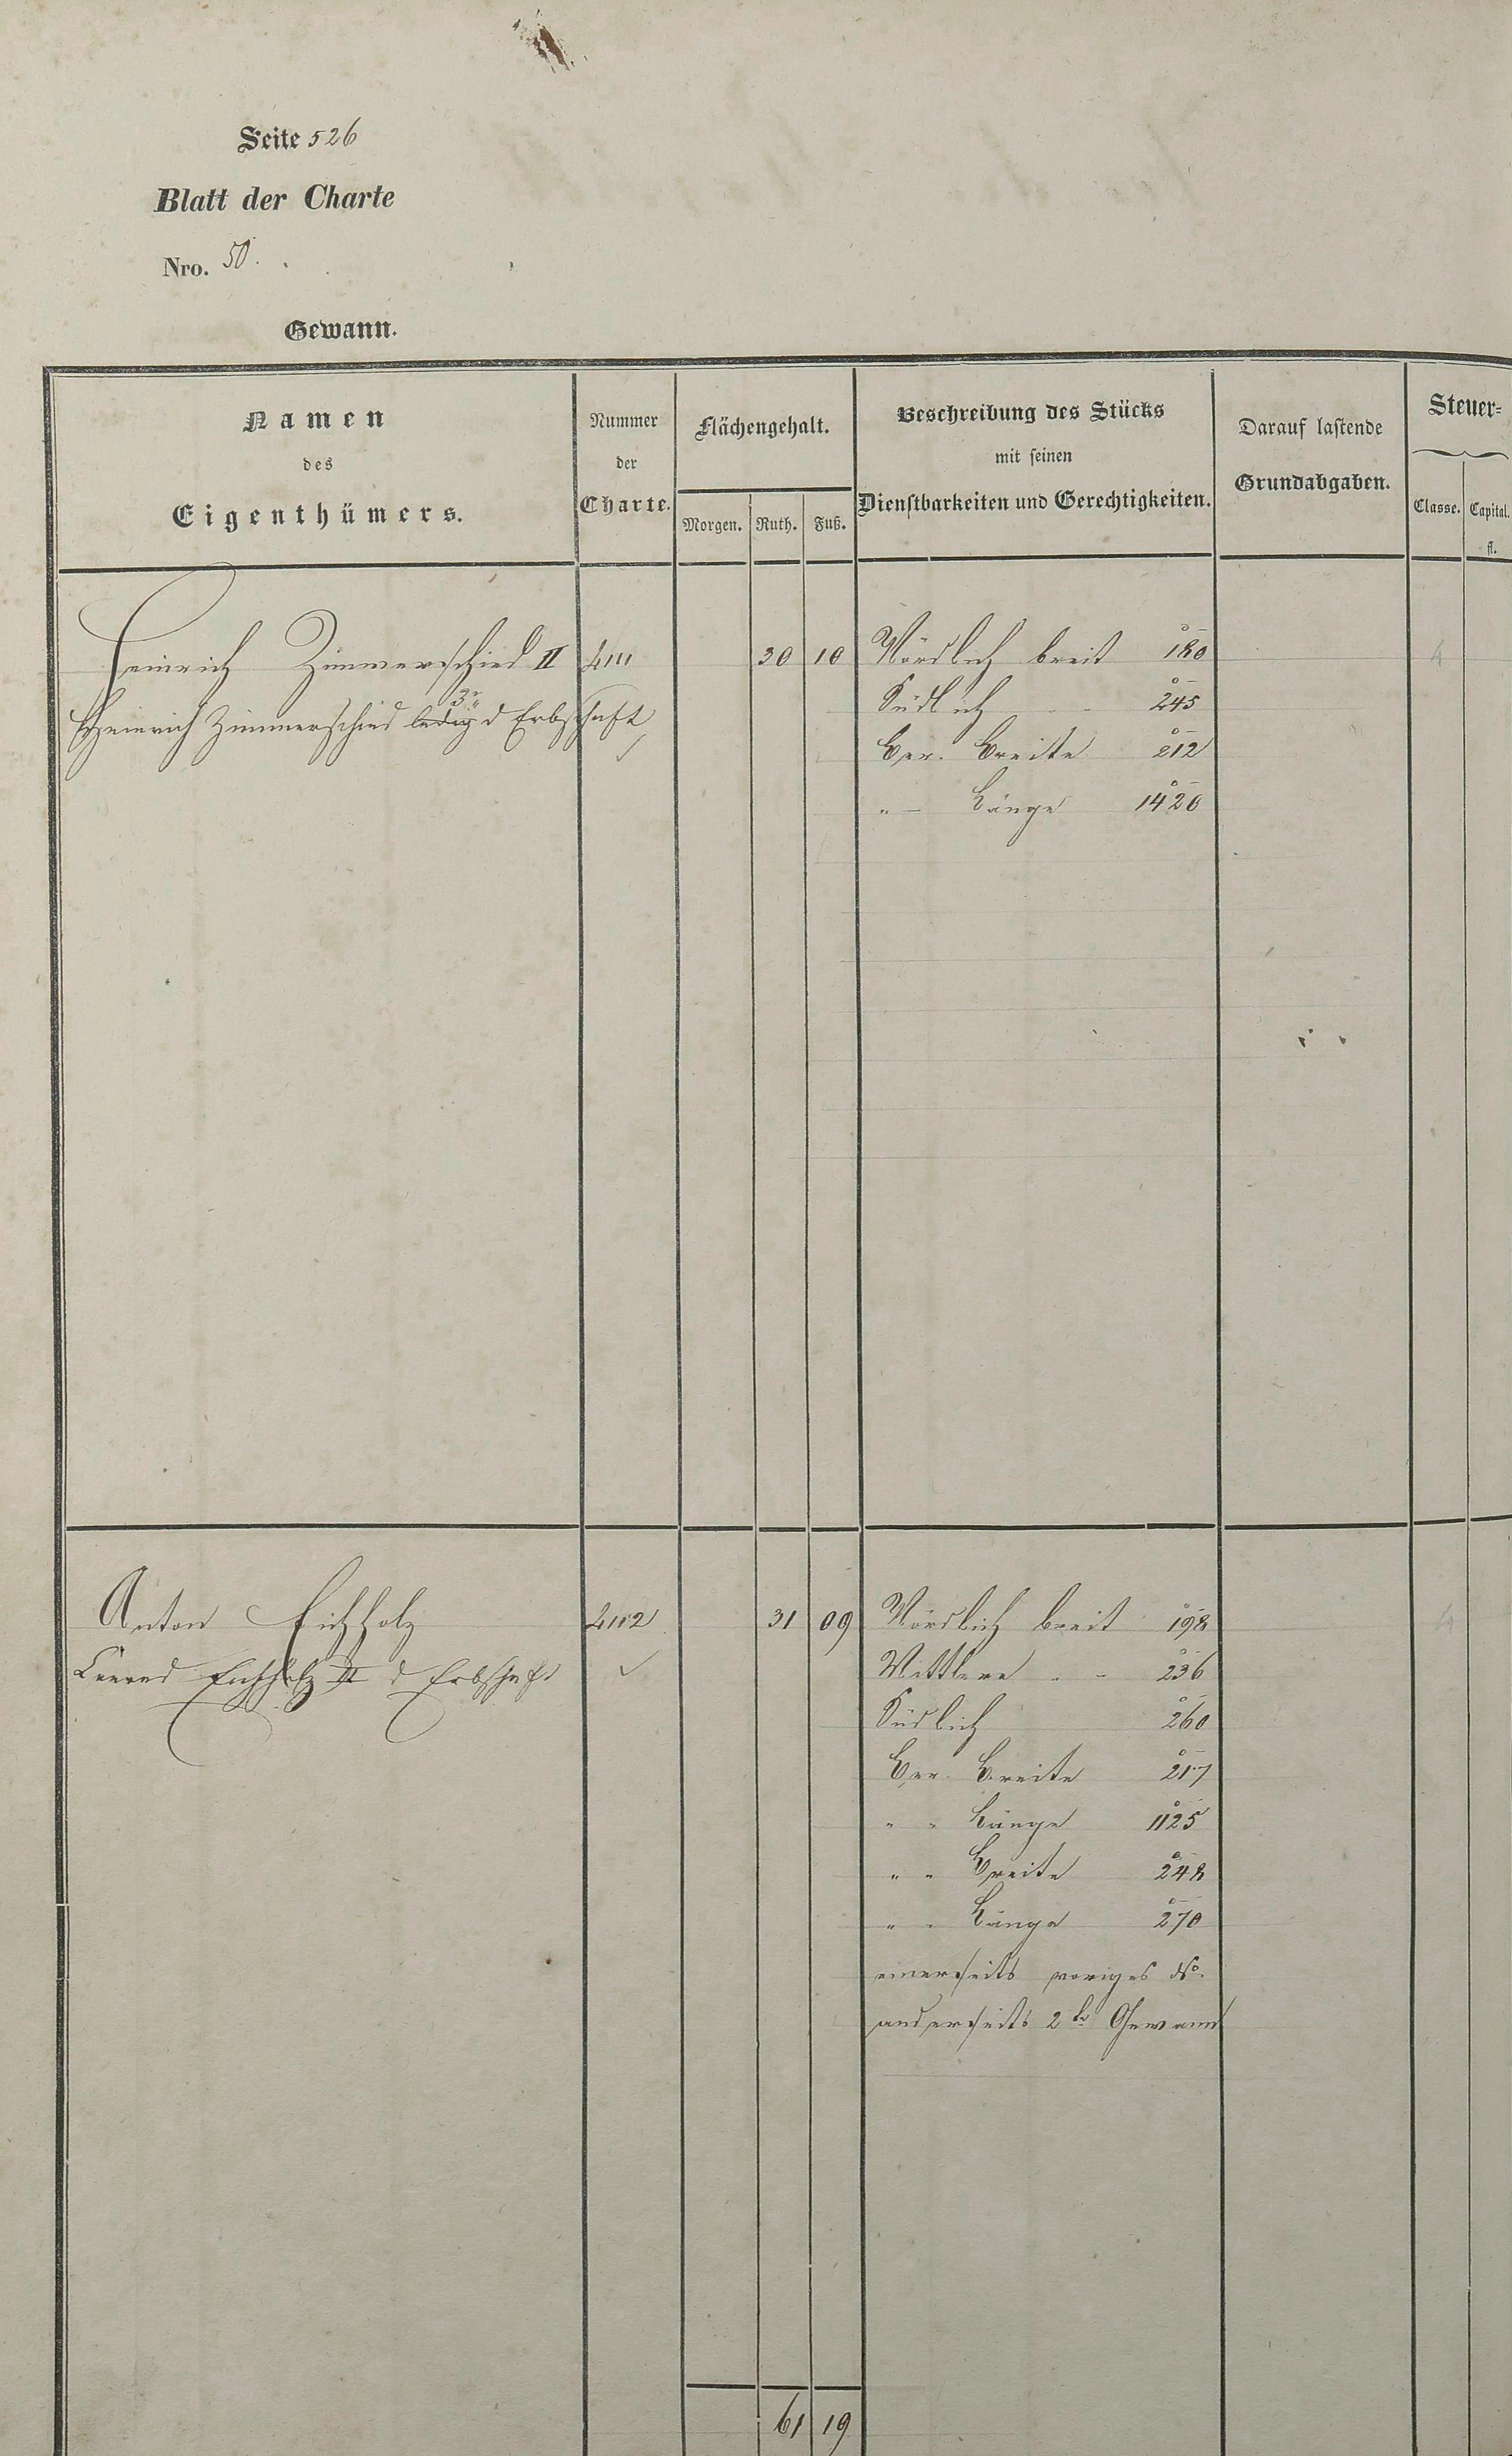 Seite 526
Blatt der Charte
Nro. 50.
Gewann.
Namen des Eigenthümers.
Nummer der Charte.
Flächengehalt.
Morgen. Ruth. Fuß.
Beschreibung des Stücks
mit seinen
Dienstbarkeiten und Gerechtigkeiten.
Darauf lastende
Grundabgaben.
Steuer-
Classe. Capital.
fl.
Heinrich Zimmerschied II 4111 30 10 Nördlich breit 180 4
3r
Heinrich Zimmerschied ledig d Erbschaft
Südlich 245
Ber. Breite 212
" – Länge 1420
Anton Eichholz 4112 31 09 Nördlich breit 198 4
Conrad Eichholz II d Erbschaft
Mittlere " " 236
Südlich 260
Ber. Breite 217
" " Länge 1125
" " Breite 248
" " Länge 270
einerseits voriges No.
anderseits 2te Gewann
61 19